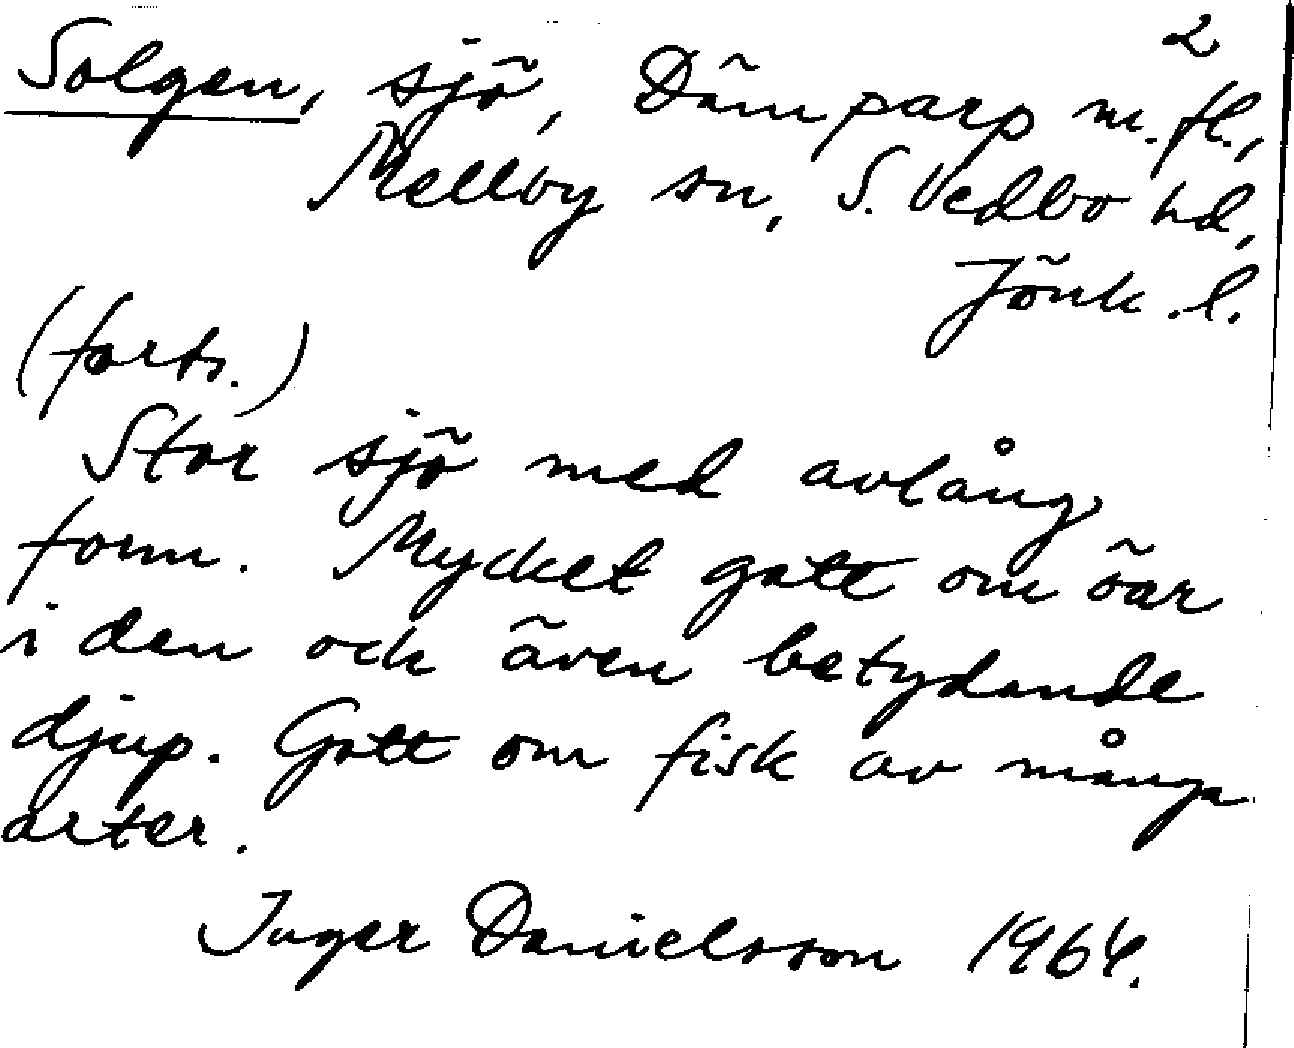 2
Solgen, sjö, Dämparp m.fl.,
Mellby sn, S. Vedbo hd,
Jönk.l.
(forts.)
Stor sjö med avlång
form. Mycket gott om öar
i den och även betydande
djup. Gott om fisk av många
arter.
Inger Danielsson 1964.